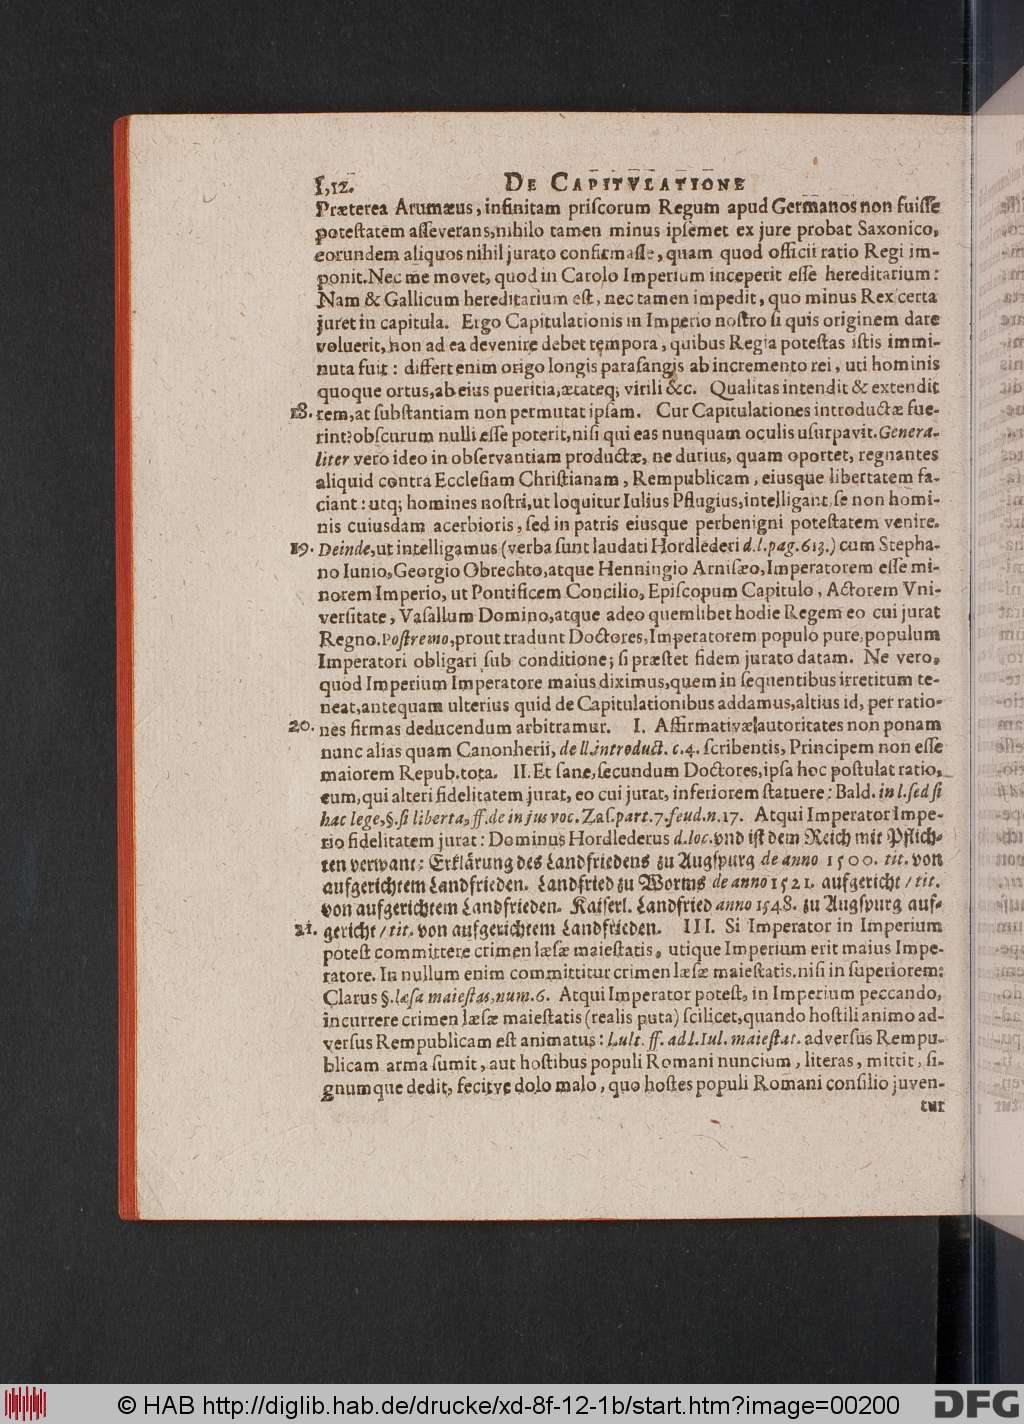 I,12. DE CAPITVLATIONE
Præterea Arumæus, infinitam priſcorum Regum apud Germanos non fuiſſe
poteſtatem aſſeverans, nihilo tamen minus ipſemet ex jure probat Saxonico,
eorundem aliquos nihil jurato confirmaſſe, quam quod officii ratio Regi im-
ponit. Nec me movet, quod in Carolo Imperium inceperit eſſe hereditarium:
Nam & Gallicum hereditarium eſt, nec tamen impedit, quo minus Rex certa
juret in capitula. Ergo Capitulationis in Imperio noſtro ſi quis originem dare
voluerit, non ad ea devenire debet tempora, quibus Regia poteſtas iſtis immi-
nuta fuit: differt enim origo longis paraſangis ab incremento rei, uti hominis
quoque ortus, ab eius pueritia, ætateq; virili &c. Qualitas intendit & extendit
18. rem, at ſubſtantiam non permutat ipſam. Cur Capitulationes introductæ fue-
rint? obſcurum nulli eſſe poterit, niſi qui eas nunquam oculis uſurpavit. Genera-
liter vero ideo in obſervantiam productæ, ne durius, quam oportet, regnantes
aliquid contra Eccleſiam Chriſtianam, Rempublicam, eiusque libertatem fa-
ciant: utq; homines noſtri, ut loquitur Iulius Pflugius, intelligant, ſe non homi-
nis cuiusdam acerbioris, ſed in patris eiusque perbenigni poteſtatem venire.
19. Deinde, ut intelligamus (verba ſunt laudati Hordlederi d.l. pag. 613.) cum Stepha-
no Iunio, Georgio Obrechto, atque Henningio Arniſæo, Imperatorem eſſe mi-
norem Imperio, ut Pontificem Concilio, Epiſcopum Capitulo, Actorem Vni-
verſitate, Vaſallum Domino, atque adeo quemlibet hodie Regem eo cui jurat
Regno. Poſtremo, prout tradunt Doctores, Imperatorem populo pure, populum
Imperatori obligari ſub conditione; ſi præſtet fidem jurato datam. Ne vero,
quod Imperium Imperatore maius diximus, quem in ſequentibus irretitum te-
neat, antequam ulterius quid de Capitulationibus addamus, altius id, per ratio-
20. nes firmas deducendum arbitramur. I. Affirmativæ autoritates non ponam
nunc alias quam Canonherii, de ll. introduct. c. 4. ſcribentis, Principem non eſſe
maiorem Repub. tota. II. Et ſane, ſecundum Doctores, ipſa hoc poſtulat ratio,
eum, qui alteri fidelitatem jurat, eo cui jurat, inferiorem ſtatuere: Bald. in l. ſed ſi
hac lege, §. ſi liberta, ff. de in jus voc. Zaſ. part. 7. feud. n. 17. Atqui Imperator Impe-
rio fidelitatem jurat: Dominus Hordlederus d. loc. vnd iſt dem Reich mit Pflich-
ten verwant: Erklärung des Landfriedens zu Augſpurg de anno 1500. tit. von
aufgerichtem Landfrieden. Landfried zu Worms de anno 1521. aufgericht / tit.
von aufgerichtem Landfrieden. Kaiſerl. Landfried anno 1548. zu Augſpurg auf-
21. gericht / tit. von aufgerichtem Landfrieden. III. Si Imperator in Imperium
poteſt committere crimen læſæ maieſtatis, utique Imperium erit maius Impe-
ratore. In nullum enim committitur crimen læſæ maieſtatis, niſi in ſuperiorem:
Clarus §. læſa maieſtas, num. 6. Atqui Imperator poteſt, in Imperium peccando,
incurrere crimen læſæ maieſtatis (realis puta) ſcilicet, quando hoſtili animo ad-
verſus Rempublicam eſt animatus: l. ult. ff. ad l. Iul. maieſtat. adverſus Rempu-
blicam arma ſumit, aut hoſtibus populi Romani nuncium, literas, mittit, ſi-
gnumque dedit, fecitve dolo malo, quo hoſtes populi Romani conſilio juven-
tur
© HAB http://diglib.hab.de/drucke/xd-8f-12-1b/start.htm?image=00200 DFG